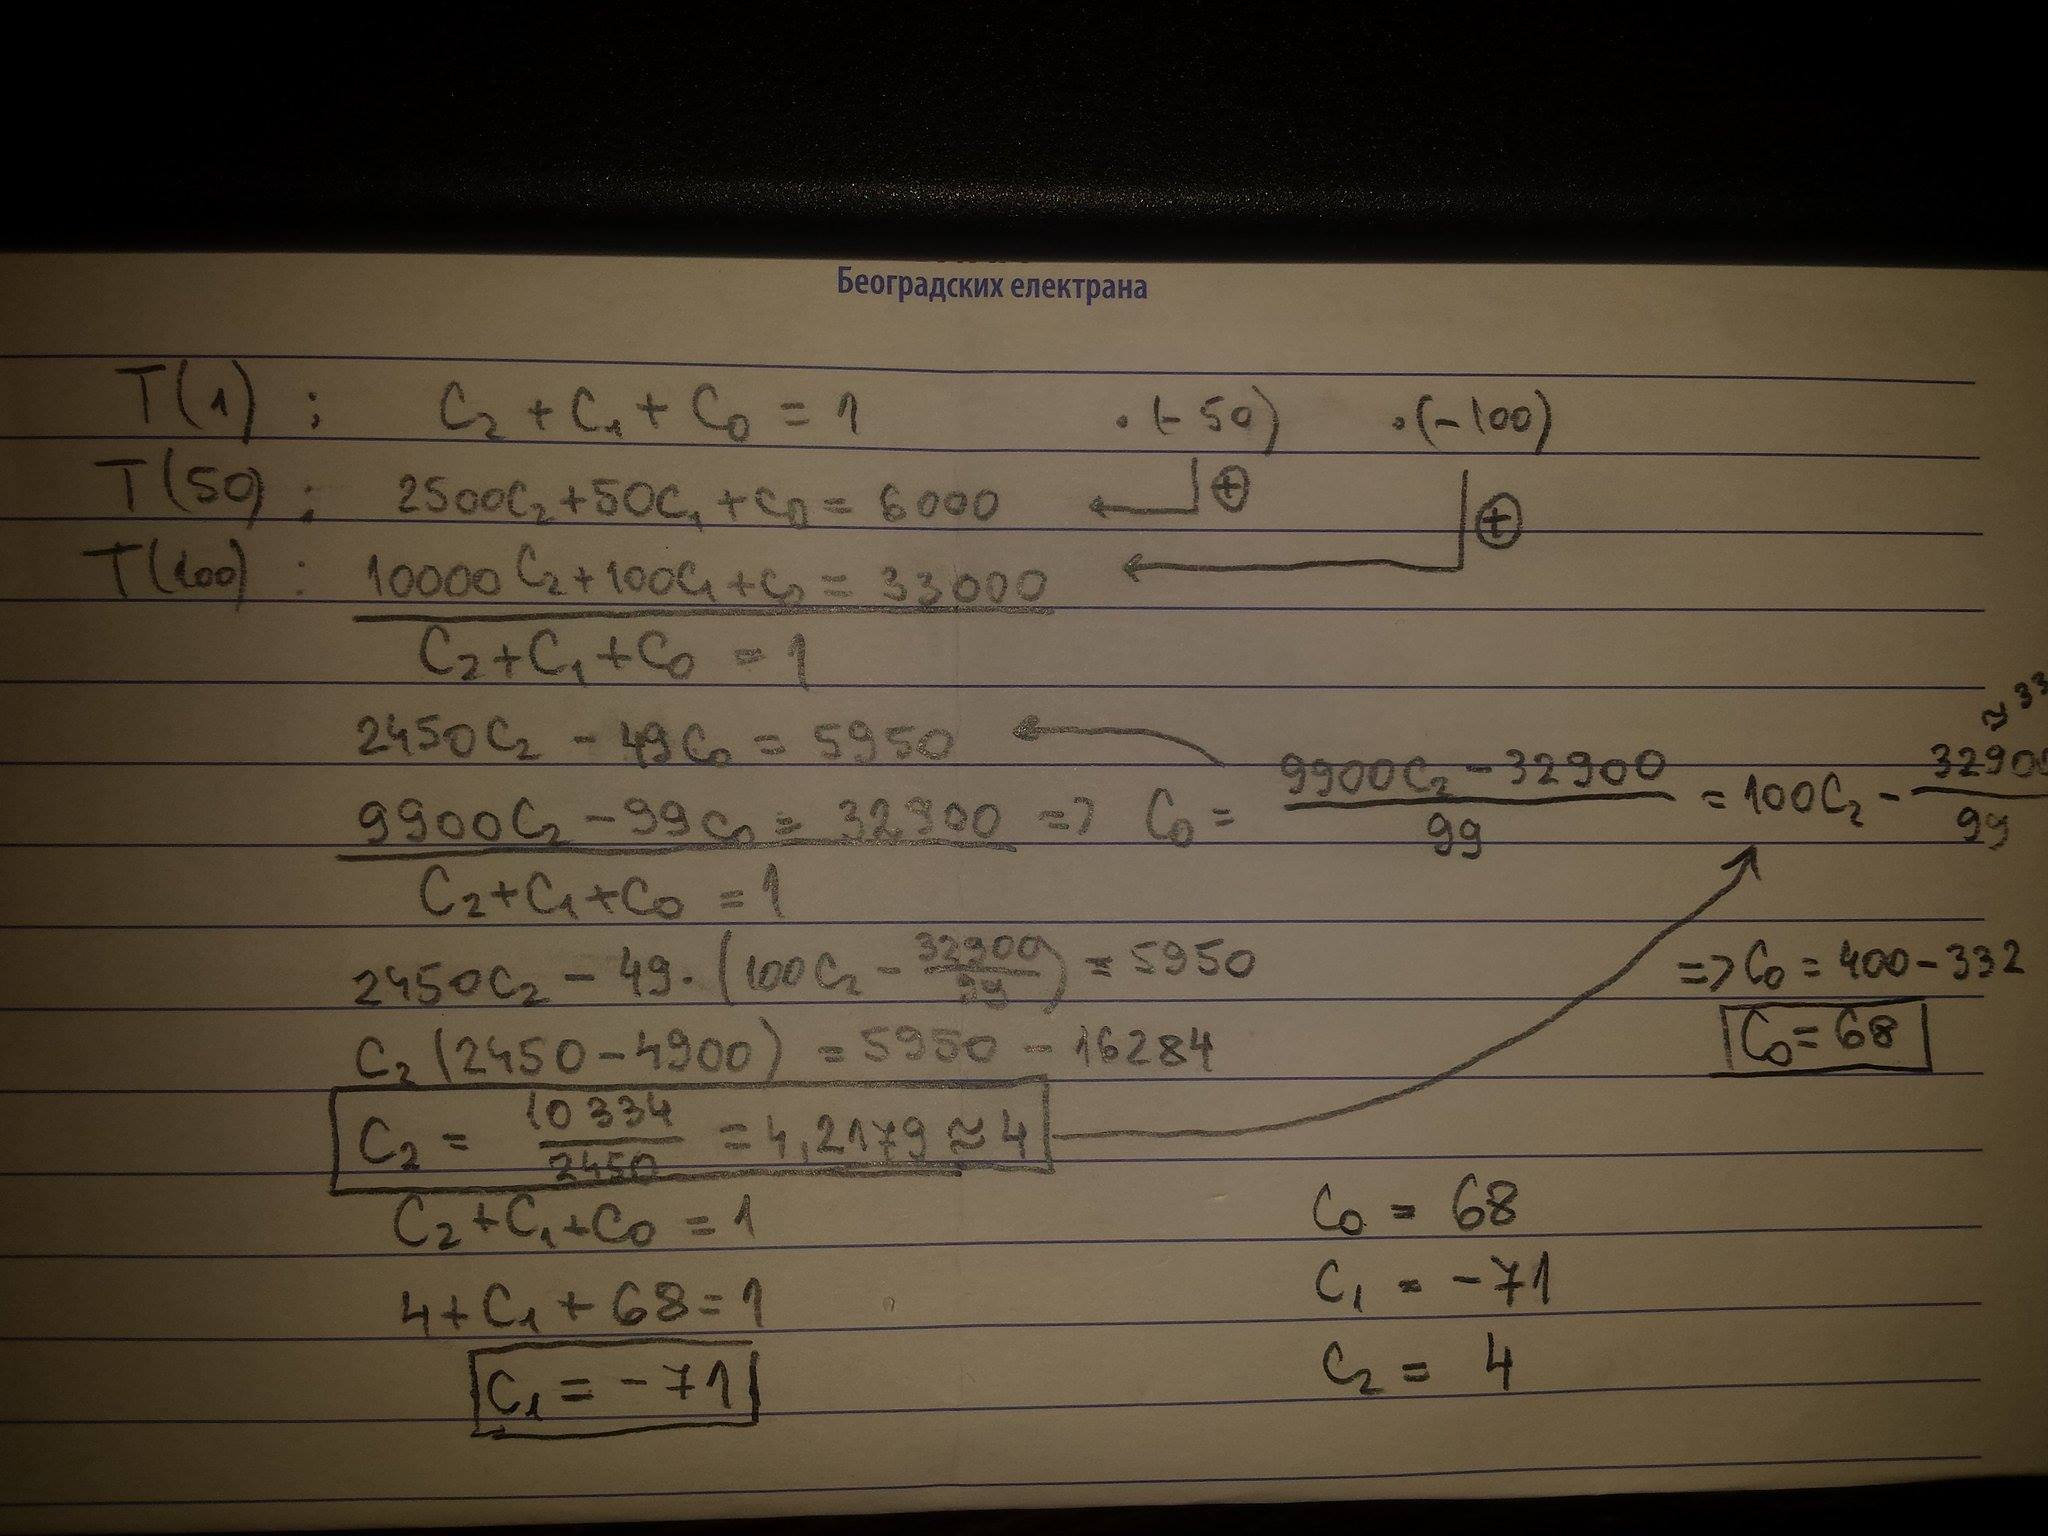 Београдских електрана
T(1) : C₂ + C₁ + C₀ = 1 · (-50) · (-100)
T(50) : 2500C₂ + 50C₁ + C₀ = 6000 ⊕
T(100) : 10000C₂ + 100C₁ + C₀ = 33000 ⊕
C₂ + C₁ + C₀ = 1
2450C₂ - 49C₀ = 5950
9900C₂ - 99C₀ = 32900 => C₀ = (9900C₂ - 32900)/99 = 100C₂ - 32900/99
C₂ + C₁ + C₀ = 1
2450C₂ - 49 · (100C₂ - 32900/99) = 5950
=> C₀ = 400 - 332
C₀ = 68
C₂ (2450 - 4900) = 5950 - 16284
C₂ = 10334/2450 = 4,2179 ≈ 4
C₂ + C₁ + C₀ = 1
4 + C₁ + 68 = 1
C₁ = -71
C₀ = 68
C₁ = -71
C₂ = 4